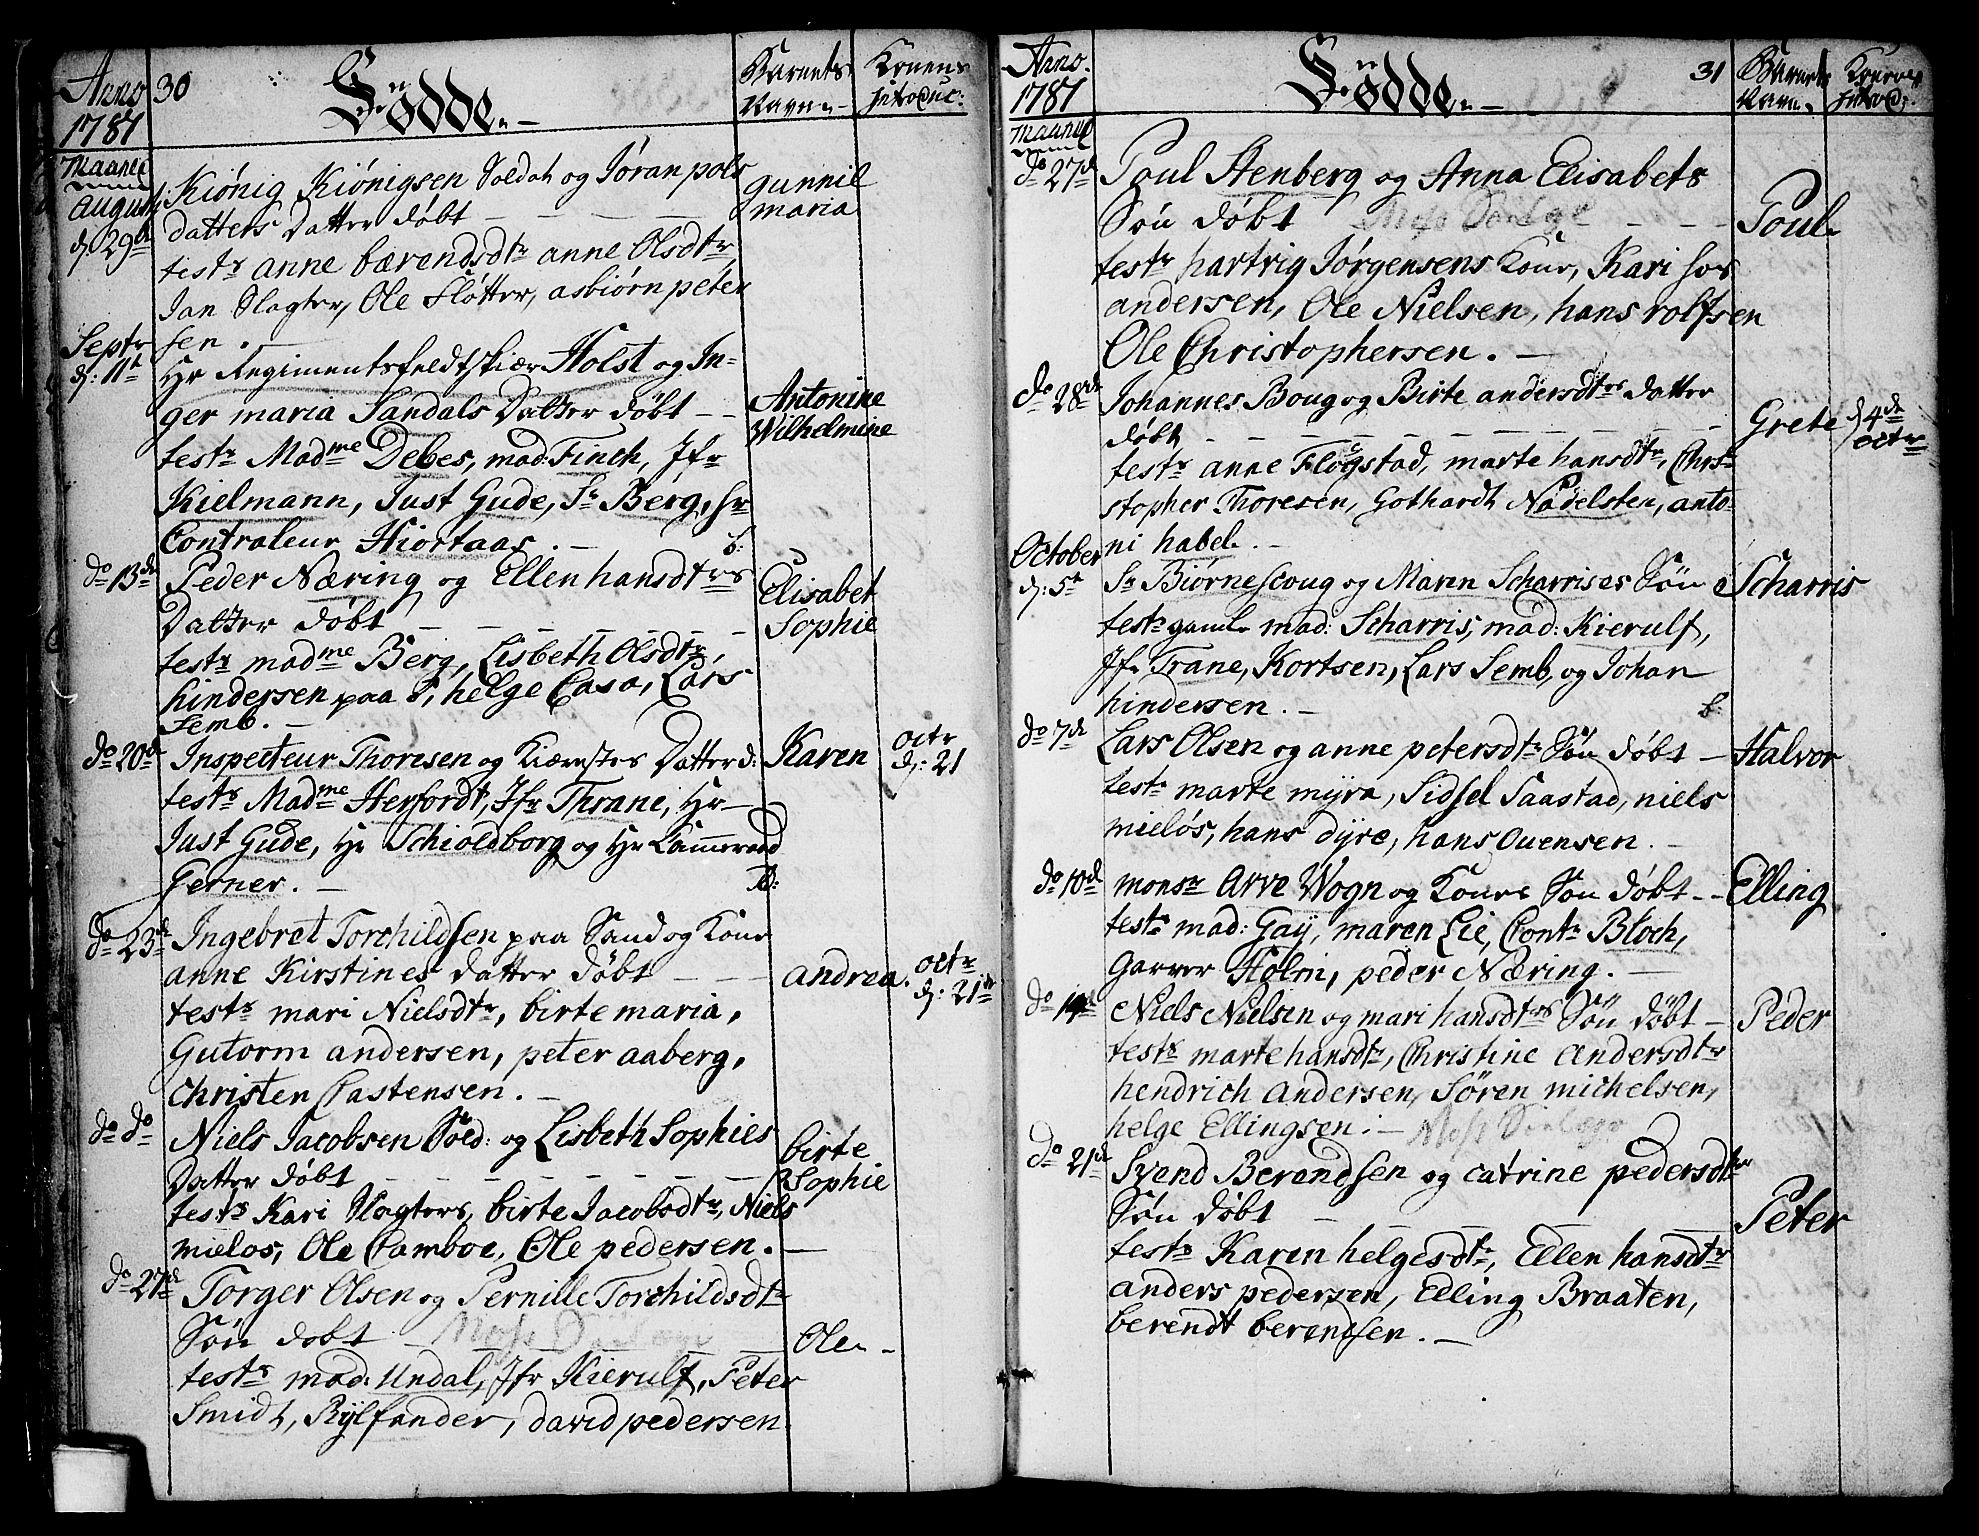 Anno 30 Födde.
1781
Barnets Navn
Konens introduc:
Maaned
August
d: 29de
Kiönig Kiönigsen Soldat og Jöran pols
datters Datter döbt
gunnil
maria
testr anne bærendsdtr anne Olsdtr,
Jan Slagter, Ole Slötter, asbiörn peter
sen.
Septr
d: 11t
Hr Regimentsfeldtskiær Holst og In-
ger maria Sandals Datter döbt
Antonine
Wilhelmine
testr Madme Debes, mad: Finch, Jfr
Kielmann, Just Gude, Sr Berg, hr
Contraleur Hiortaas.
do 13de
Peder Næring og Ellen hansdtrs
Datter döbt
Elisabet
Sophie
testr madme Berg, Lisbeth Olsdtr,
hindersen paa S, helge Casa, Lars
Semb.
do 20de
Inspecteur Thoresen og Kiærestes Datter d:
Karen
octr
d: 21
testr Madme Herfordt, Jfr Thrane, Hr
Just Gude, Hr Schioldborg og Hr Cammerraad
Gerner.
do 23de
Ingebret Torchildsen paa Sand og Kone
anne Kirstines datter döbt
andrea.
octr
d: 21de
testr mari Nielsdtr, birte maria,
Gutorm andersen, peter aaberg,
Christen Castensen.
do do
Niels Jacobsen Sold: og Lisbeth Sophies
Datter döbt
birte
Sophie
testr Kari Slagters, birte Jacobsdtr, Niels
mielos, Ole Camboe, Ole pedersen.
do 27de
Torger Olsen og Pernille Torchildsdtr
Sön döbt
Ole
testr mad: Undal, Jfr Kierulf, Peter
Smidt, Rylfander, david pedersen.
Anno 1781
Födde. 31
Barnets Navn
Konens introd:
Maaned
do 27de
Poul Stenberg og Anna Elisabets
Sön döbt
Poul
testr hartvig Jörgensens Kone, Kari
andersen, Ole Nielsen, hans rolfsen
Ole Christophersen.
do 28de
Johannes Boug og Birte andersdtrs datter
döbt
Grete
d 4de
octr
testr anne Flogstad, marte hansdtr, Chri-
stopher Thoresen, Gothardt Nadelsten, anto-
ni habel.
October
d: 5t
Sr Biörnescoug og Maren Scharrises Sön
Scharris
testr gaml mad: Scharris, mad: Kierulf,
Jfr Trane, Kortsen, Lars Semb, og Johan
hindersen.
do 7de
Lars Olsen og anne petersdtr Sön döbt
Halvor
testr marte myra, Sidsel Saastad, niels
mielös, hans dyre, hans Ouensen.
do 10de
monsr Arve Wogn og Kones Sön döbt
Elling
testr mad: Gay, maren Lie, Contr Bloch,
Garver Holm, peder Næring.
do 14de
Niels Nielsen og mari hansdtrs Sön döbt
Peder
testr marte hansdtr, Christine Andersdtr
hendrich Andersen, Sören michelsen,
helge Ellingsen.
do 21de
Svend Berendsen og Catrine pedersdtr
Sön döbt
Peter
testr Karen helgesdtr, Ellen hansdtr
anders pedersen, Elling Braaten,
berendt berendsen.